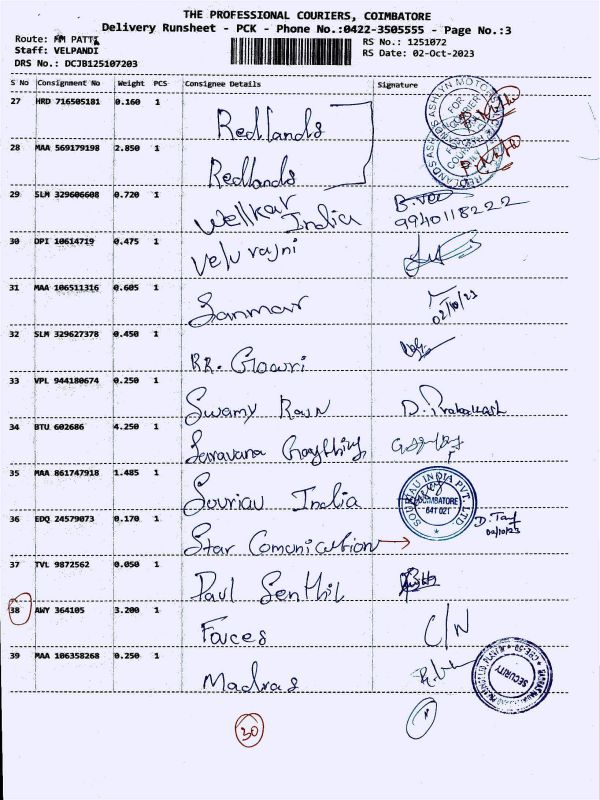 THE PROFESSIONAL COURIERS, COIMBATORE
Delivery Runsheet - PCK - Phone No.:0422-3505555 - Page No.:3
Route: MM PATTI
RS No.: 1251072
Staff: VELPANDI
RS Date: 02-Oct-2023
DRS No.: DCJB125107203
S No Consignment No Weight PCS Consignee Details Signature
27 HRD 716505181 0.160 1
Redlands
28 MAA 569179198 2.850 1
Redlands
29 SLM 329606608 0.720 1
Wellkar India
9940118222
30 DPI 10614719 0.475 1
Velu rajni
31 MAA 106511316 0.605 1
Sanmar
02/10/23
32 SLM 329627378 0.450 1
RR. Gowri
33 VPL 944180674 0.250 1
Swamy Rajn D. Prabakash
34 BTU 602686 4.250 1
Saravana
35 MAA 861747918 1.485 1
Souriau India
SOURIAU INDIA PVT. LTD
COIMBATORE
641 021
36 EDQ 24579073 0.170 1
Star Comunication
37 TVL 9872562 0.050 1
Paul Senthil
38 AWY 364105 3.200 1
Faxces C/N
39 MAA 106358268 0.250 1
Madras
SECURITY
30